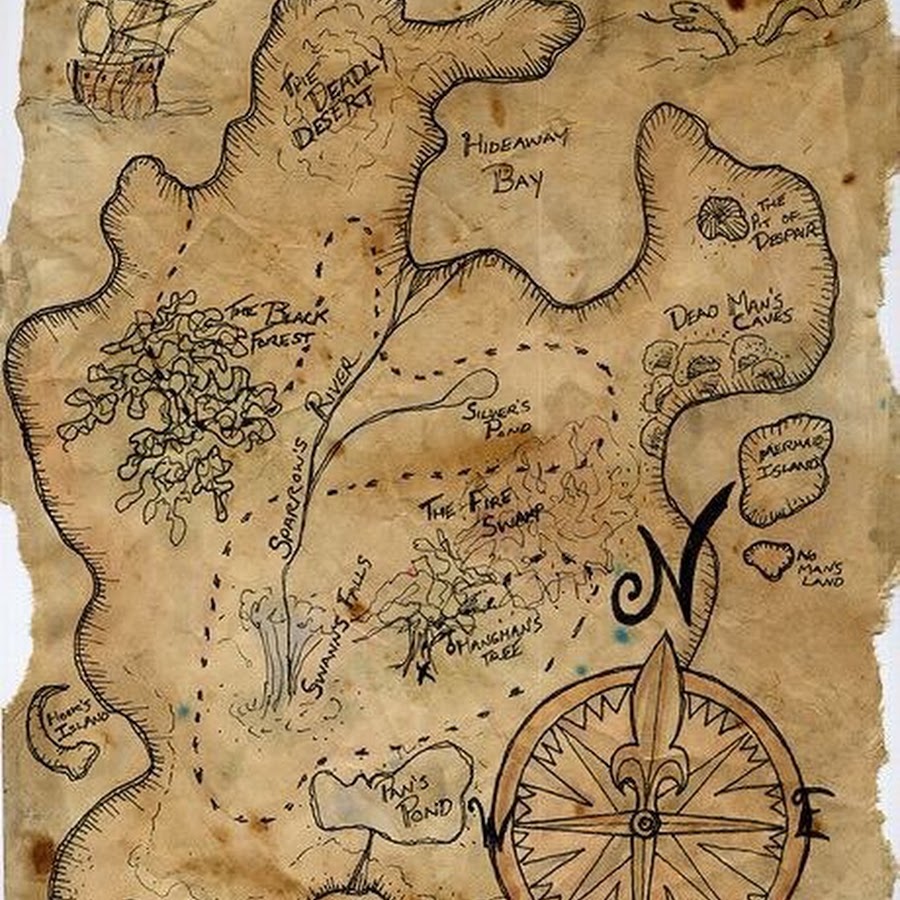 THE
DEADLY
DESERT
HIDEAWAY
BAY
THE
PIT OF
DESPAIR
THE BLACK
FOREST
DEAD MAN'S
CAVES
SPARROW'S RIVER
SILVER'S
POND
MERMAID
ISLAND
THE FIRE
SWAMP
NO
MAN'S
LAND
SWANN'S FALLS
HANGMAN'S
TREE
HOOK'S
ISLAND
PAN'S
POND
N
W
E